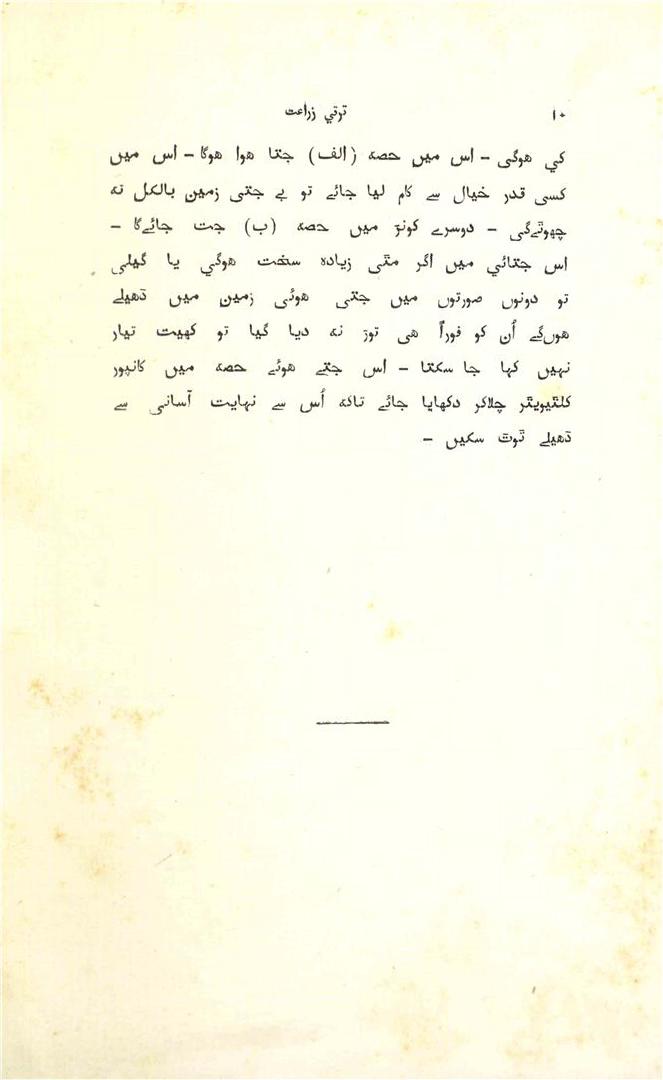 ۱۰ ترقي زراعت
کي هوگی - اس میں حصہ (الف) جتا هوا هوگا - اس میں
کسی قدر خیال سے کام لیا جائے تو بے جتی زمین بالکل نہ
چهوٹےگی - دوسرے کونڑ میں حصہ (ب) جت جائےگا -
اس جتائي میں اگر مٹی زیادہ سخت هوگي یا گیلی
تو دونوں صورتوں میں جتی هوئی زمین میں ڈهیلے
هوںگے اُن کو فوراً هی توڑ نہ دیا گیا تو کهیت تیار
نہیں کہا جا سکتا - اس جتے هوئے حصہ میں کانپور
کلٹیویٹر چلاکر دکهایا جائے تاکہ اُس سے نہایت آسانی سے
ڈهیلے ٹوٹ سکیں -